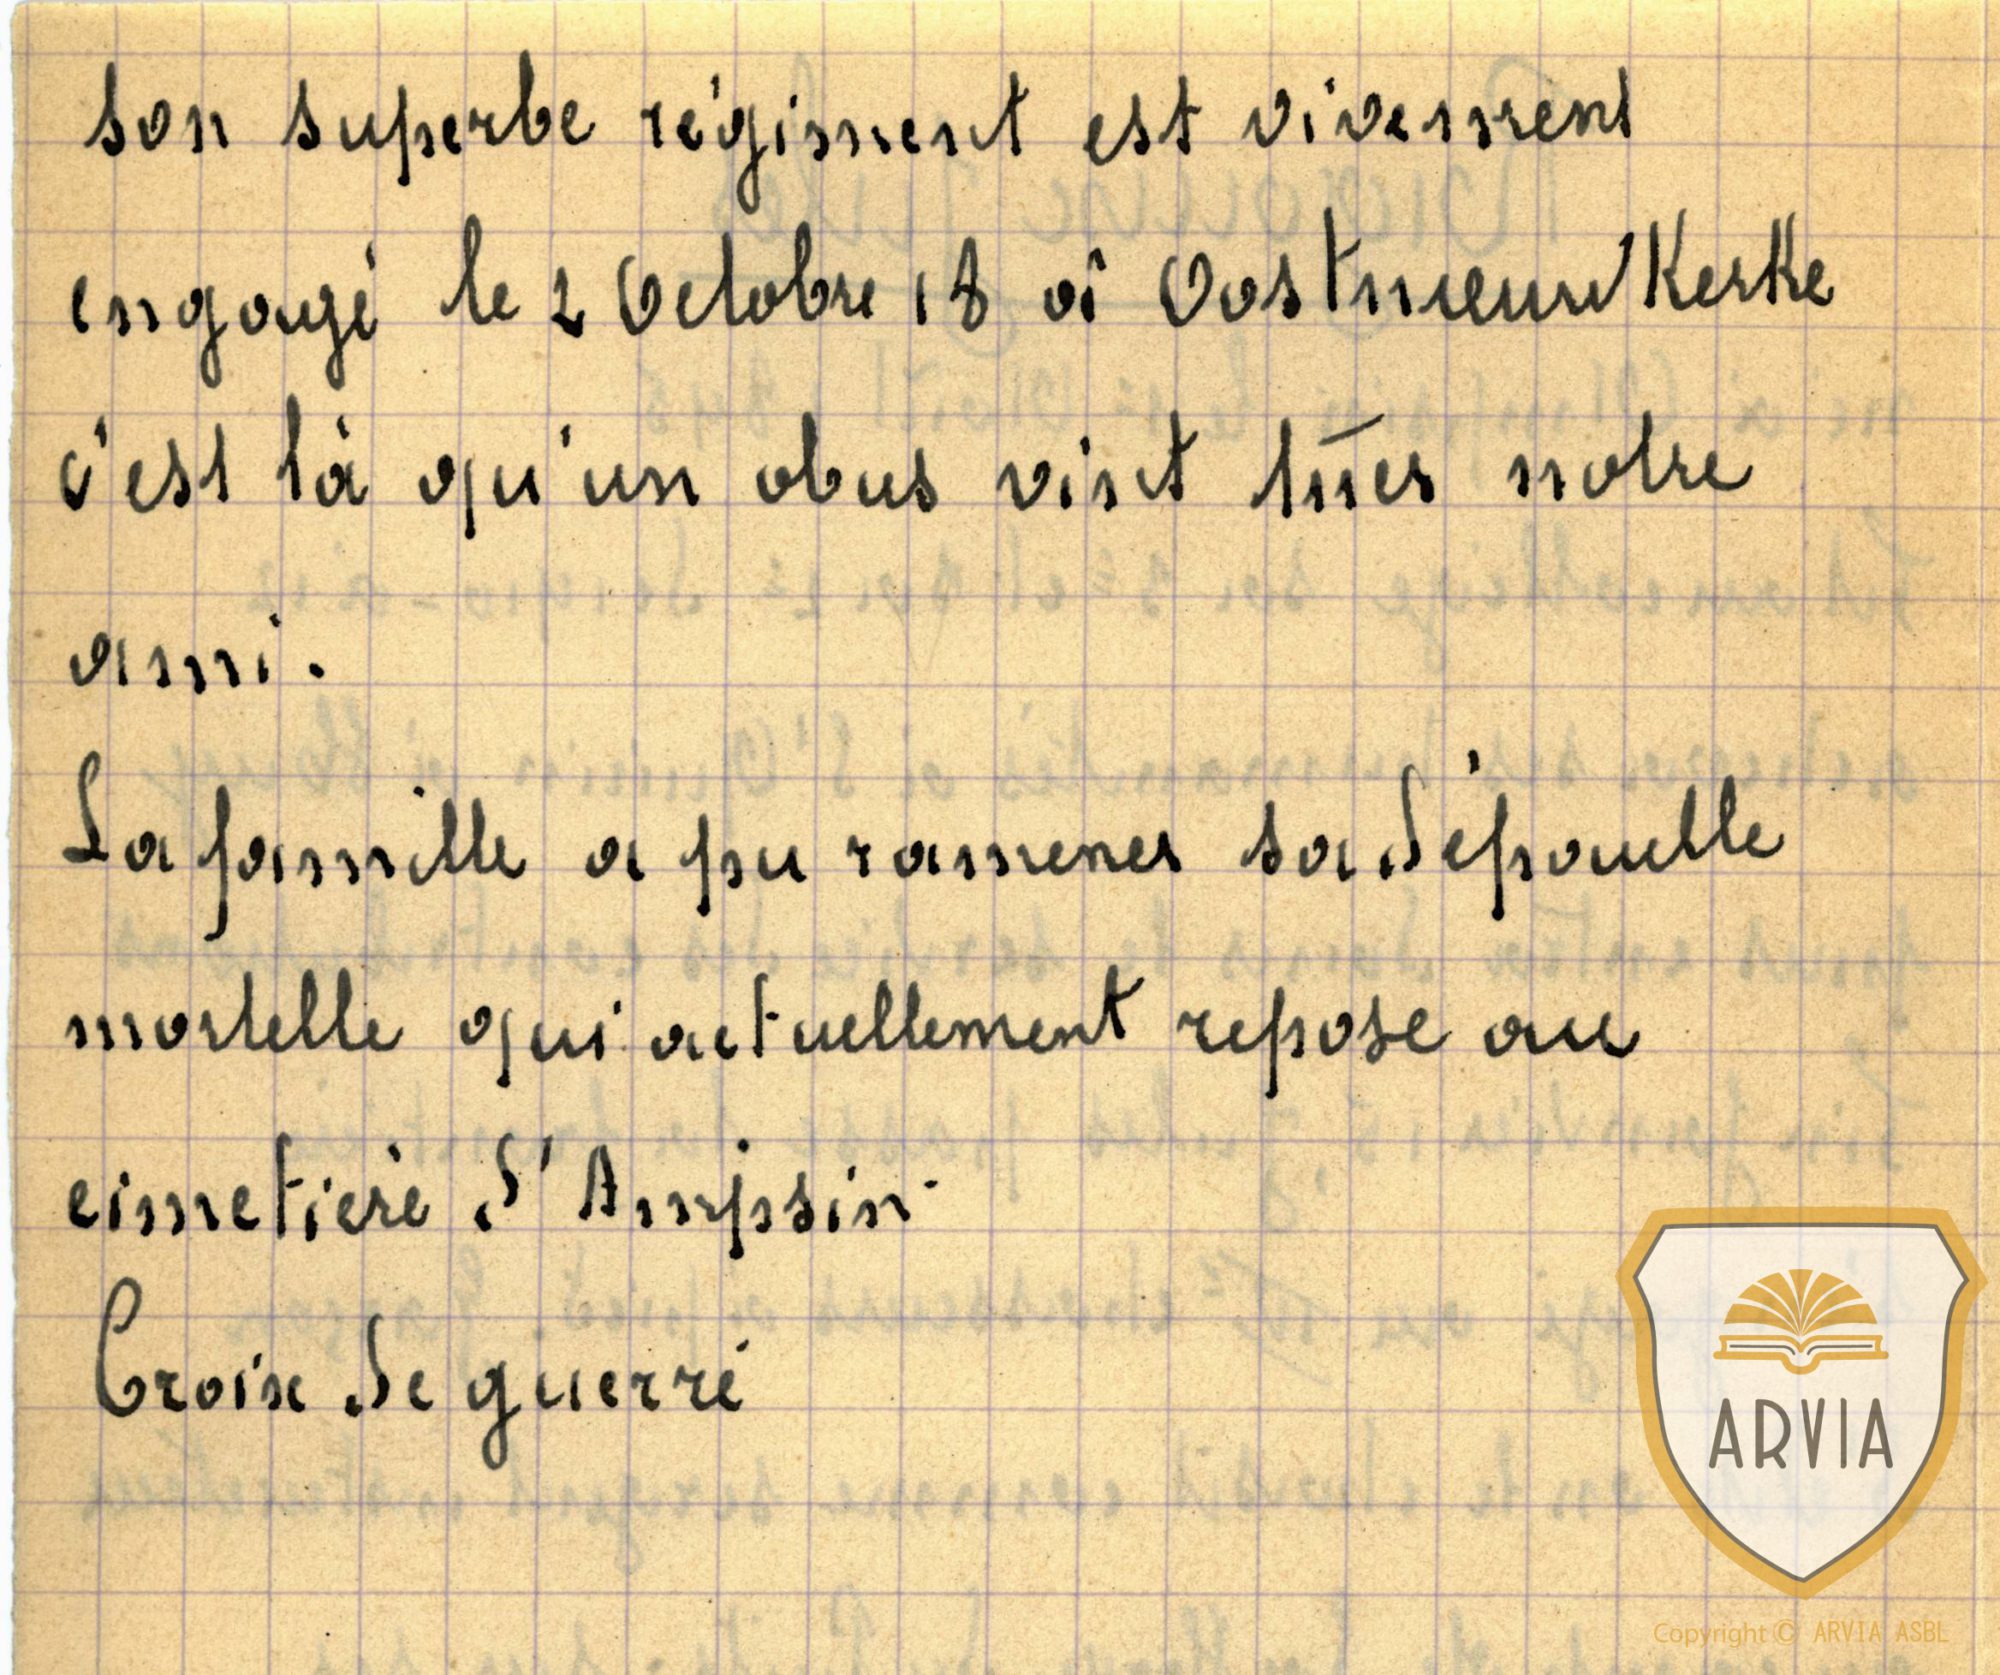 son superbe régiment est vivement
engagé le 2 Octobre 18 à OostnieuwKerke
c'est là qu'un obus vint tuer notre
ami.
La famille a pu ramener sa dépouille
mortelle qui actuellement repose au
cimetière d'Ampsin.
Croix de guerre
ARVIA
Copyright © ARVIA ASBL